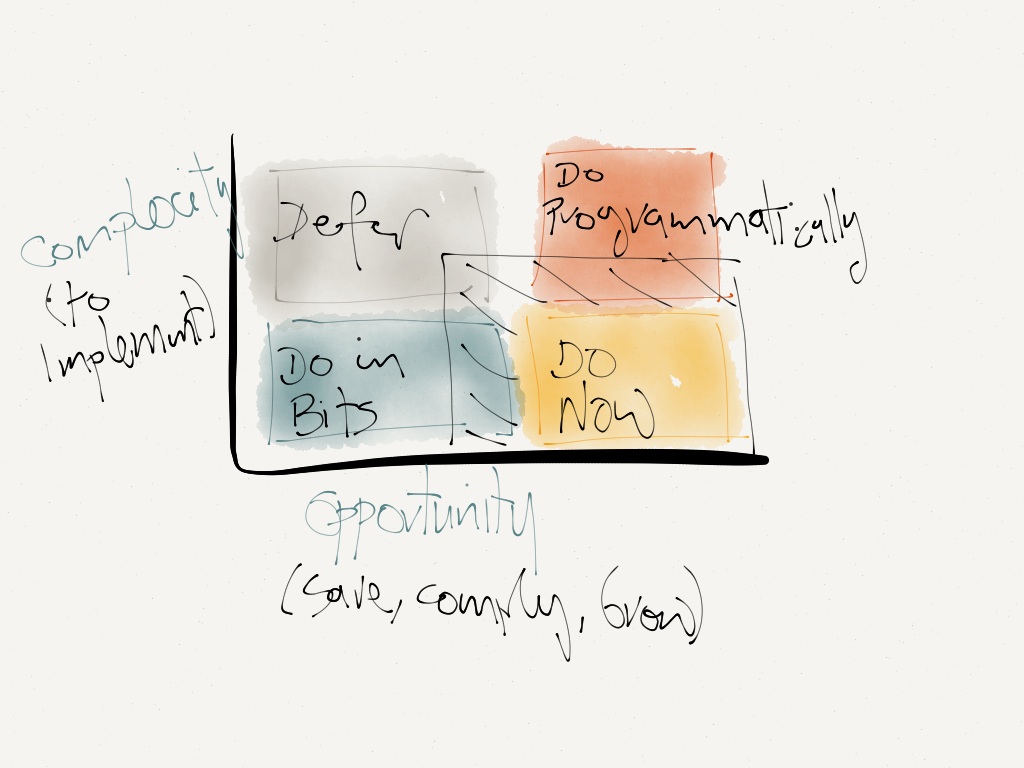 Complexity
(to
Implement)
Defer
Do
Programmatically
Do in
Bits
Do
Now
Opportunity
(Save, comply, Grow)